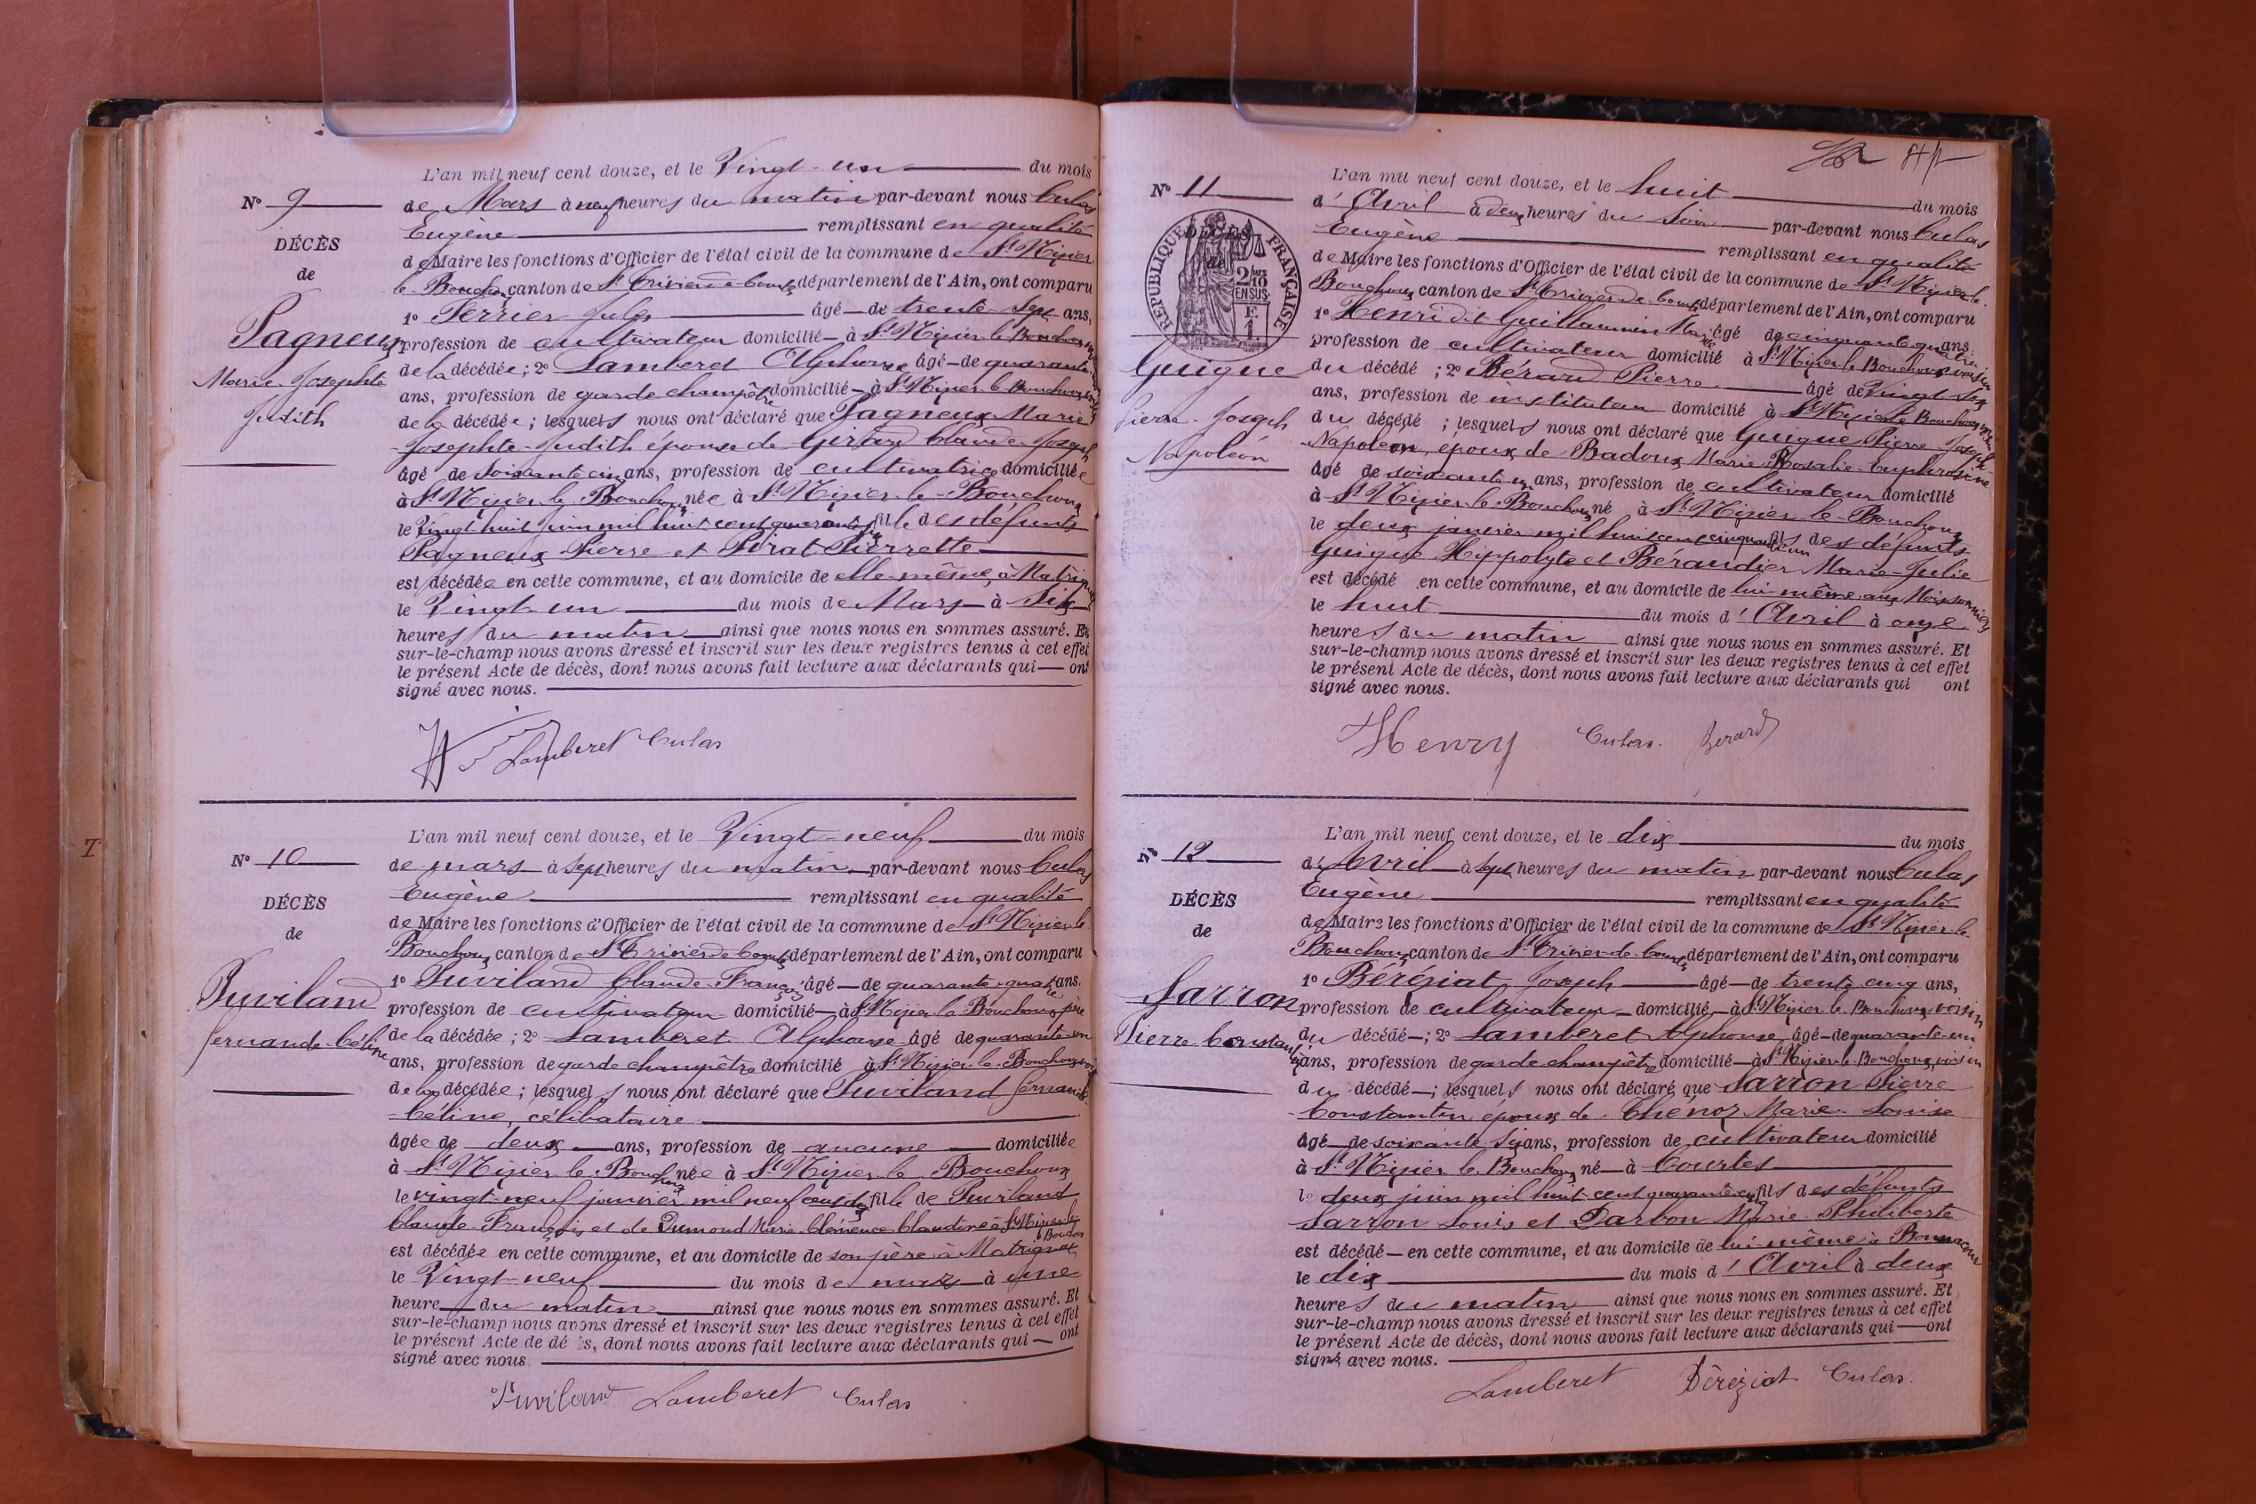 L'an mil neuf cent douze, et le Vingt-un du mois
N° 9
de Mars à neuf heures du matin par-devant nous Culas
Eugène remplissant en qualité
DÉCÈS
de Maire les fonctions d'Officier de l'état civil de la commune de St Nizier
de
le Bouchoux canton de St Trivier de Courtes département de l'Ain, ont comparu
1° Perrier Jules âgé de trente sept ans,
Pagneux
profession de cultivateur domicilié à St Nizier le Bouchoux
Marie Josephte
de la décédée; 2° Lamberet Alphonse âgé de quarante
ans, profession de garde champêtre domicilié à St Nizier le Bouchoux
Judith
de la décédée; lesquels nous ont déclaré que Pagneux Marie
Josephte Judith épouse de Girard Claude Joseph
âgée de soixante cinq ans, profession de cultivatrice domiciliée
à St Nizier le Bouchoux née à St Nizier le Bouchoux
le Vingt huit juin mil huit cent quarante six fille des défunts
Pagneux Pierre et Pirat Pierrette
est décédée en cette commune, et au domicile de elle-même, à
le Vingt un du mois de Mars à six
heures du matin ainsi que nous nous en sommes assuré. Et
sur-le-champ nous avons dressé et inscrit sur les deux registres tenus à cet effet
le présent Acte de décès, dont nous avons fait lecture aux déclarants qui ont
signé avec nous.
Lamberet Culas
L'an mil neuf cent douze, et le Vingt-neuf du mois
N° 10
de mars à sept heures du matin par-devant nous Culas
Eugène remplissant en qualité
DÉCÈS
de Maire les fonctions d'Officier de l'état civil de la commune de St Nizier le
de
Bouchoux canton de St Trivier de Courtes département de l'Ain, ont comparu
1° Puviland Claude François âgé de quarante quatre ans.
Puviland
profession de cultivateur domicilié à St Nizier le Bouchoux père
Fernande Céline
de la décédée; 2° Lamberet Alphonse âgé de quarante un
ans, profession de garde champêtre domicilié à St Nizier le Bouchoux voisin
de la décédée; lesquels nous ont déclaré que Puviland Fernande
Céline, célibataire
âgée de deux ans, profession de aucune domiciliée
à St Nizier le Bouchoux née à St Nizier le Bouchoux
le vingt-neuf janvier mil neuf cent dix fille de Puviland
Claude François et de Dumond Marie Clémence Claudine à St Nizier le
Bouchoux
est décédée en cette commune, et au domicile de son père à Matrignat
le Vingt-neuf du mois de mars à une
heure du matin ainsi que nous nous en sommes assuré. Et
sur-le-champ nous avons dressé et inscrit sur les deux registres tenus à cet effet
le présent Acte de décès, dont nous avons fait lecture aux déclarants qui ont
signé avec nous.
Puviland Lamberet Culas
L'an mil neuf cent douze, et le huit du mois
N° 11
d'Avril à deux heures du soir par-devant nous Culas
Eugène remplissant en qualité
DÉCÈS
de
RÉPUBLIQUE FRANÇAISE
2/10 EN SUS
de Maire les fonctions d'Officier de l'état civil de la commune de St Nizier le
Bouchoux canton de St Trivier de Courtes département de l'Ain, ont comparu
1° Henri dit Guillaumin âgé de cinquante quatre ans
profession de cultivateur domicilié à St Nizier le Bouchoux voisin
Guigue
du décédé; 2° Bérard Pierre âgé de Vingt six
ans, profession de instituteur domicilié à St Nizier le Bouchoux voisin
Pierre Joseph
du décédé; lesquels nous ont déclaré que Guigue Pierre Joseph
Napoléon
Napoléon, époux de Badoux Marie Rosalie Euphrosine
âgé de soixante un ans, profession de cultivateur domicilié
à St Nizier le Bouchoux né à St Nizier le Bouchoux
le deux janvier mil huit cent cinquante un fils des défunts
Guigue Hippolyte et Béraudier Marie-Julie
est décédé en cette commune, et au domicile de lui-même aux
le huit du mois d'Avril à onze
heures du matin ainsi que nous nous en sommes assuré. Et
sur-le-champ nous avons dressé et inscrit sur les deux registres tenus à cet effet
le présent Acte de décès, dont nous avons fait lecture aux déclarants qui ont
signé avec nous.
Henry Culas. Berard
L'an mil neuf cent douze, et le dix du mois
N° 12
d'Avril à sept heures du matin par-devant nous Culas
Eugène remplissant en qualité
DÉCÈS
de Maire les fonctions d'Officier de l'état civil de la commune de St Nizier le
de
Bouchoux canton de St Trivier de Courtes département de l'Ain, ont comparu
1° Béréziat Joseph âgé de trente cinq ans,
Sarron
profession de cultivateur domicilié à St Nizier le Bouchoux voisin
Pierre Constantin
du décédé; 2° Lamberet Alphonse âgé de quarante un
ans, profession de garde champêtre domicilié à St Nizier le Bouchoux voisin
du décédé; lesquels nous ont déclaré que Sarron Pierre
Constantin époux de Thénoz Marie Louise
âgé de soixante six ans, profession de cultivateur domicilié
à St Nizier le Bouchoux né à Courtes
le deux juin mil huit cent quarante cinq fils des défunts
Sarron Louis et Darbon Marie Philiberte
est décédé en cette commune, et au domicile de lui-même à
le dix du mois d'Avril à deux
heures du matin ainsi que nous nous en sommes assuré. Et
sur-le-champ nous avons dressé et inscrit sur les deux registres tenus à cet effet
le présent Acte de décès, dont nous avons fait lecture aux déclarants qui ont
signé avec nous.
Lamberet Béréziat Culas.